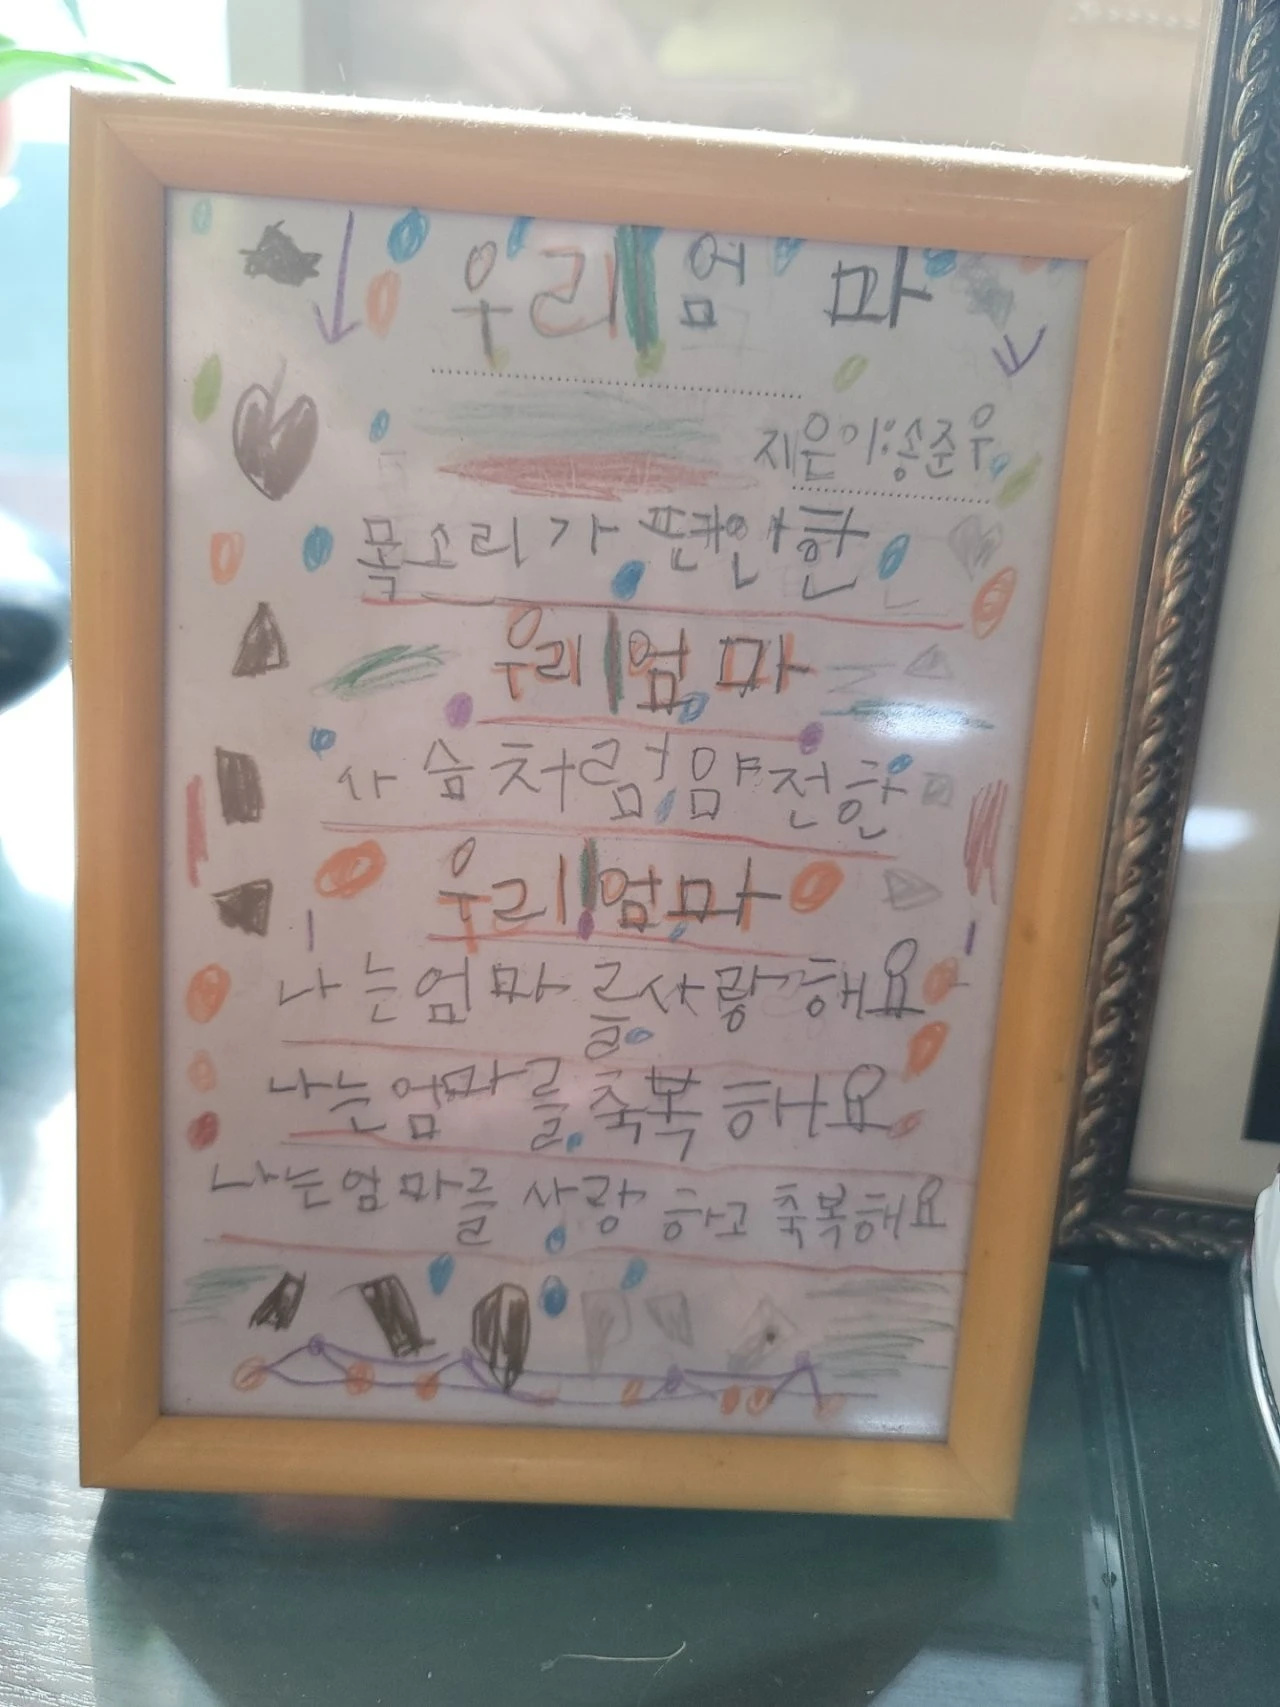 우리 엄마
지은이:송준우
목소리가 편안한
우리 엄마
사슴처럼 얌전한
우리 엄마
나는 엄마를 사랑해요
나는 엄마를 축복해요
나는 엄마를 사랑하고 축복해요